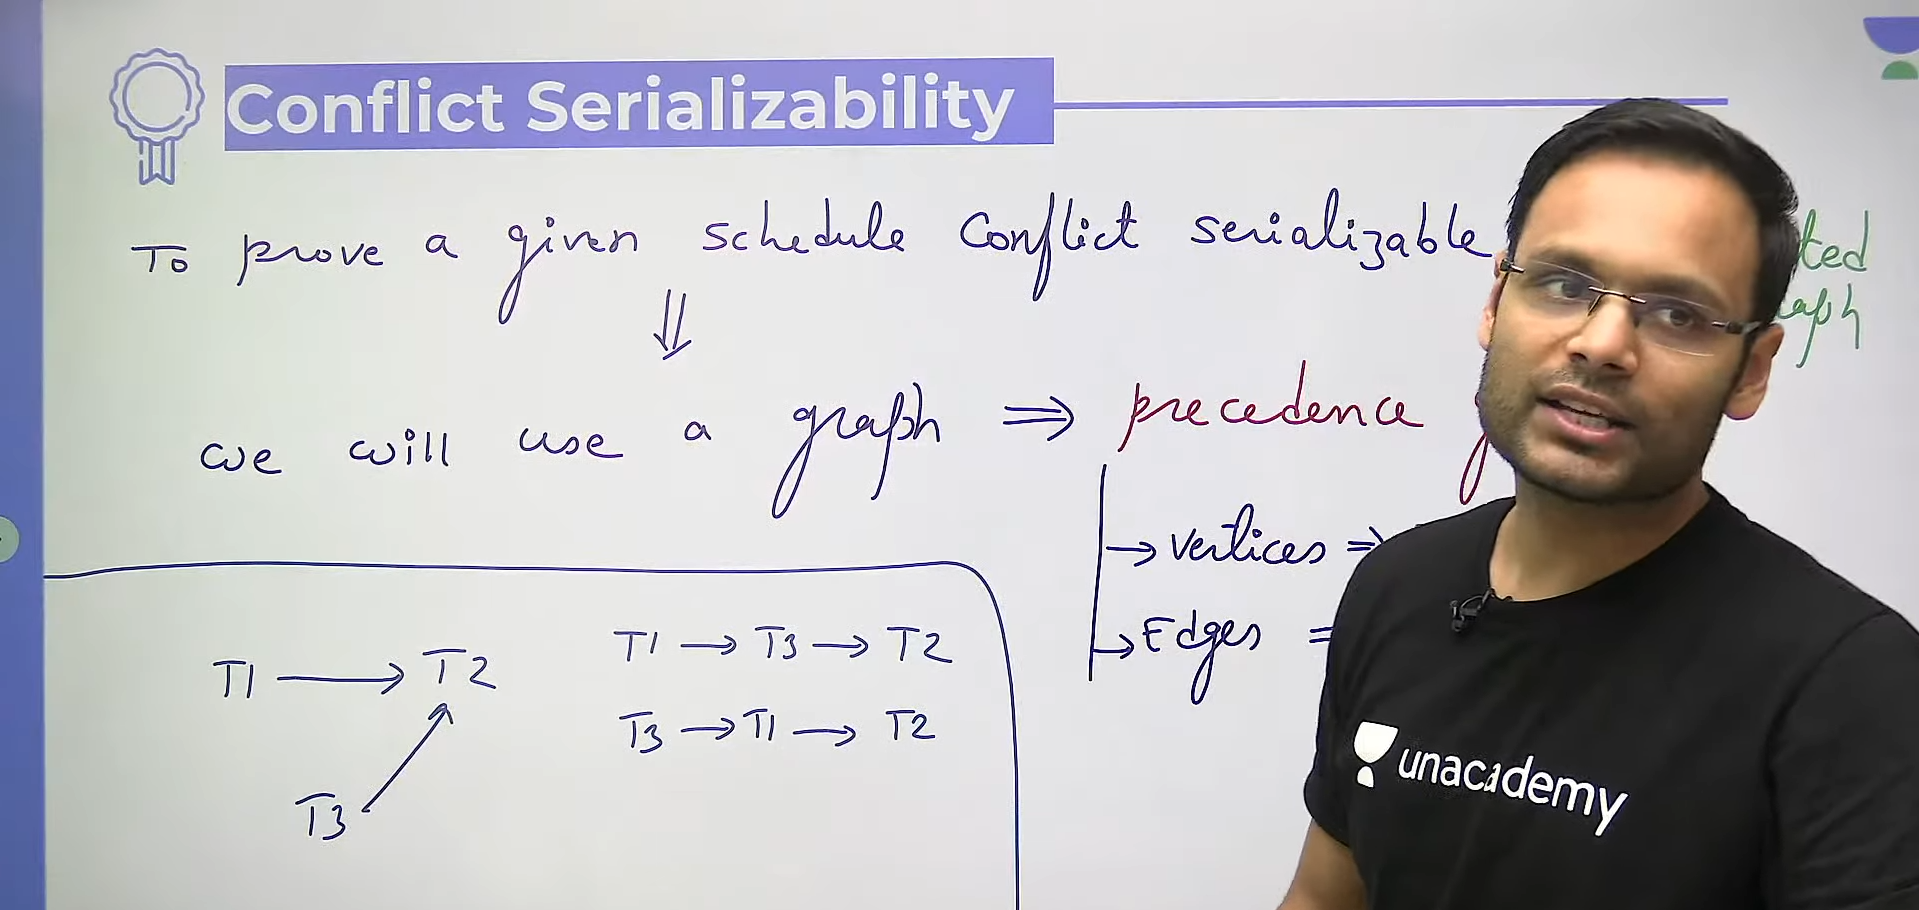 Conflict Serializability
To prove a given schedule Conflict serializable
⇓
we will use a graph ⇒ precedence
→ vertices ⇒
→ Edges =
T1 → T2
T3
T1 → T3 → T2
T3 → T1 → T2
unacademy